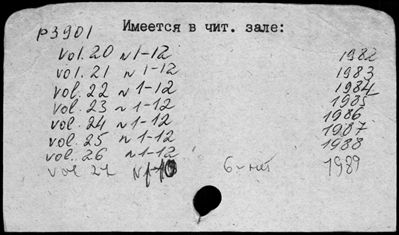 р3901 Имеется в чит. зале:
vol. 20 N 1-12 1982
vol. 21 N 1-12 1983
vol. 22 N 1-12 1984
vol. 23 N 1-12 1985
vol. 24 N 1-12 1986
vol. 25 N 1-12 1987
vol. 26 N 1-12 1988
vol 27 N 1-10 6-нет 1989